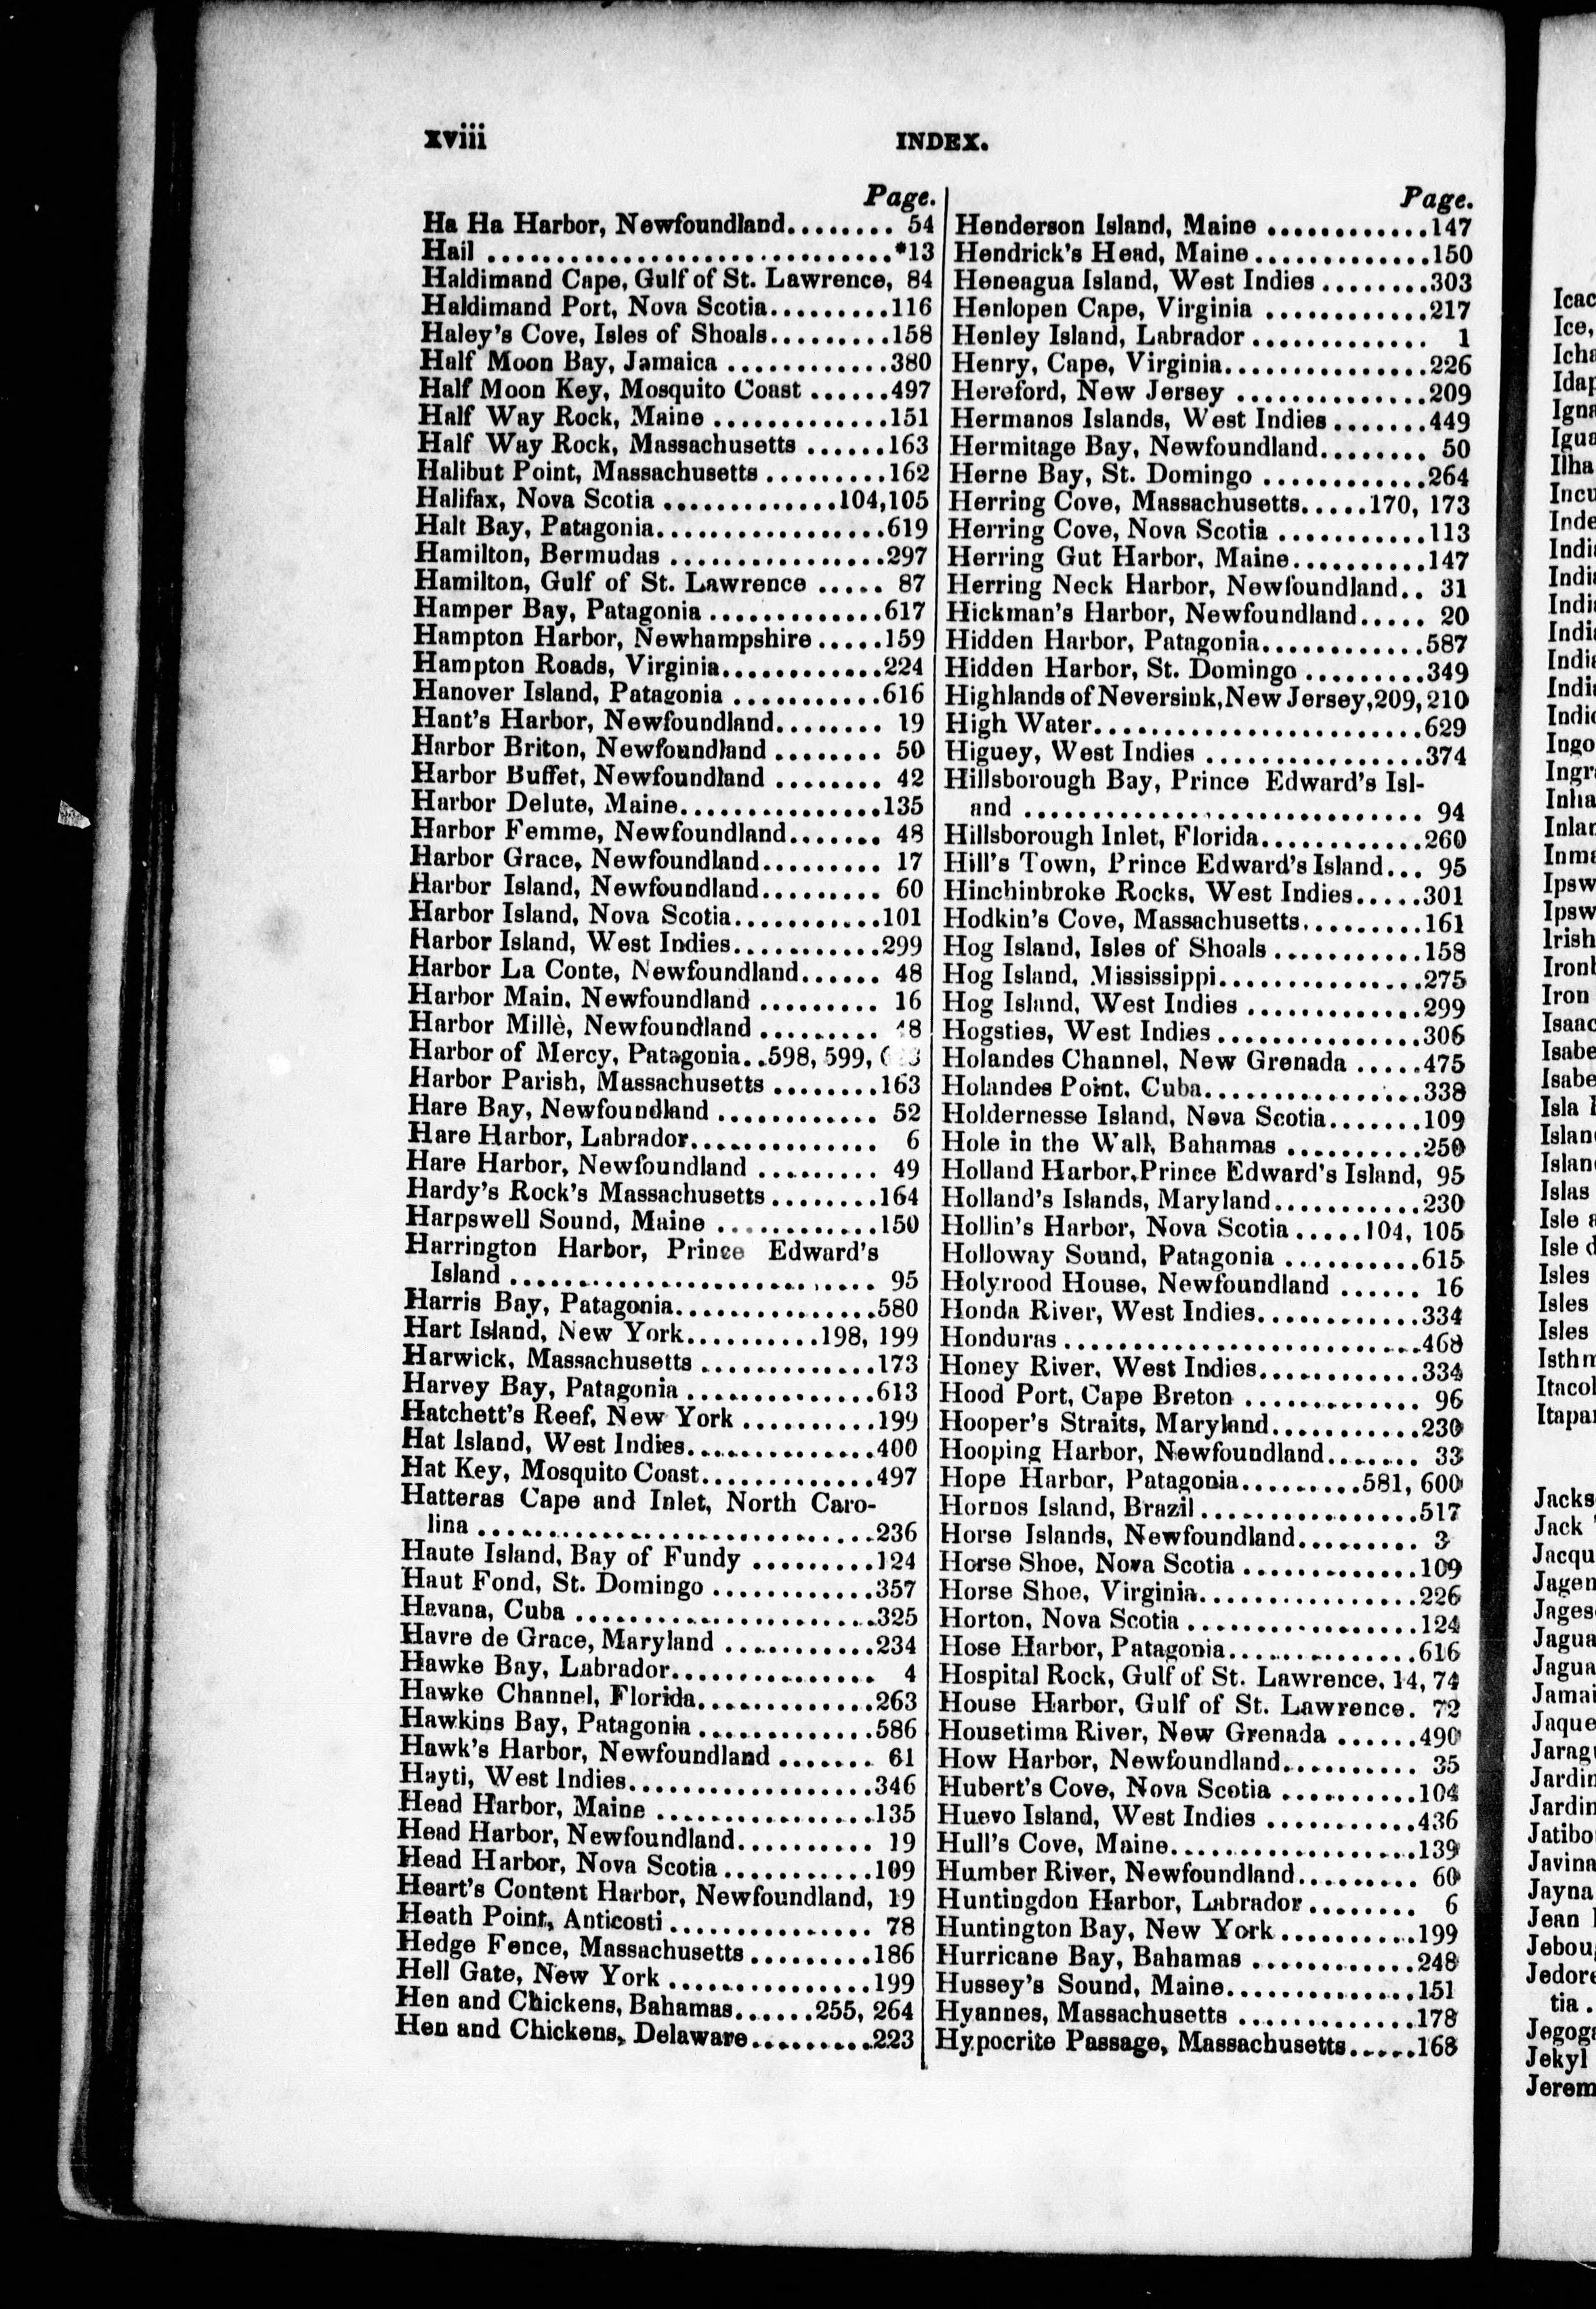 xviii
INDEX.
Page.
Ha Ha Harbor, Newfoundland........ 54
Hail ..............................*13
Haldimand Cape, Gulf of St. Lawrence, 84
Haldimand Port, Nova Scotia.........116
Haley's Cove, Isles of Shoals.........158
Half Moon Bay, Jamaica ............380
Half Moon Key, Mosquito Coast ......497
Half Way Rock, Maine .............151
Half Way Rock, Massachusetts ......163
Halibut Point, Massachusetts .........162
Halifax, Nova Scotia .............104,105
Halt Bay, Patagonia.................619
Hamilton, Bermudas ................297
Hamilton, Gulf of St. Lawrence ..... 87
Hamper Bay, Patagonia .............617
Hampton Harbor, Newhampshire .....159
Hampton Roads, Virginia............224
Hanover Island, Patagonia ...........616
Hant's Harbor, Newfoundland........ 19
Harbor Briton, Newfoundland ........ 50
Harbor Buffet, Newfoundland ........ 42
Harbor Delute, Maine...............135
Harbor Femme, Newfoundland....... 48
Harbor Grace, Newfoundland......... 17
Harbor Island, Newfoundland......... 60
Harbor Island, Nova Scotia...........101
Harbor Island, West Indies...........299
Harbor La Conte, Newfoundland...... 48
Harbor Main, Newfoundland ......... 16
Harbor Millè, Newfoundland ......... 8
Harbor of Mercy, Patagonia..598, 599,
Harbor Parish, Massachusetts ........163
Hare Bay, Newfoundland ............ 52
Hare Harbor, Labrador.............. 6
Hare Harbor, Newfoundland ......... 49
Hardy's Rock's Massachusetts ........164
Harpswell Sound, Maine ............150
Harrington Harbor, Prince Edward's
Island ........................... 95
Harris Bay, Patagonia...............580
Hart Island, New York..........198, 199
Harwick, Massachusetts .............173
Harvey Bay, Patagonia ..............613
Hatchett's Reef, New York ..........199
Hat Island, West Indies..............400
Hat Key, Mosquito Coast.............497
Hatteras Cape and Inlet, North Caro-
lina .............................236
Haute Island, Bay of Fundy .........124
Haut Fond, St. Domingo ............357
Havana, Cuba ......................325
Havre de Grace, Maryland ...........234
Hawke Bay, Labrador............... 4
Hawke Channel, Florida.............263
Hawkins Bay, Patagonia .............586
Hawk's Harbor, Newfoundland ....... 61
Hayti, West Indies..................346
Head Harbor, Maine ................135
Head Harbor, Newfoundland.......... 19
Head Harbor, Nova Scotia ...........109
Heart's Content Harbor, Newfoundland, 19
Heath Point, Anticosti ............... 78
Hedge Fence, Massachusetts .........186
Hell Gate, New York ...............199
Hen and Chickens, Bahamas......255, 264
Hen and Chickens, Delaware.........223
Page.
Henderson Island, Maine ............147
Hendrick's Head, Maine.............150
Heneagua Island, West Indies ........303
Henlopen Cape, Virginia ............217
Henley Island, Labrador ............. 1
Henry, Cape, Virginia...............226
Hereford, New Jersey ..............209
Hermanos Islands, West Indies.......449
Hermitage Bay, Newfoundland........ 50
Herne Bay, St. Domingo ............264
Herring Cove, Massachusetts.....170, 173
Herring Cove, Nova Scotia ...........113
Herring Gut Harbor, Maine..........147
Herring Neck Harbor, Newfoundland.. 31
Hickman's Harbor, Newfoundland..... 20
Hidden Harbor, Patagonia............587
Hidden Harbor, St. Domingo .........349
Highlands of Neversink, New Jersey, 209, 210
High Water.........................629
Higuey, West Indies ................374
Hillsborough Bay, Prince Edward's Isl-
and ............................. 94
Hillsborough Inlet, Florida............260
Hill's Town, Prince Edward's Island... 95
Hinchinbroke Rocks, West Indies.....301
Hodkin's Cove, Massachusetts.........161
Hog Island, Isles of Shoals ...........158
Hog Island, Mississippi...............275
Hog Island, West Indies .............299
Hogsties, West Indies ...............306
Holandes Channel, New Grenada .....475
Holandes Point, Cuba................338
Holdernesse Island, Nova Scotia.......109
Hole in the Wall, Bahamas ..........250
Holland Harbor, Prince Edward's Island, 95
Holland's Islands, Maryland...........230
Hollin's Harbor, Nova Scotia .....104, 105
Holloway Sound, Patagonia ..........615
Holyrood House, Newfoundland ...... 16
Honda River, West Indies............334
Honduras ..........................468
Honey River, West Indies............334
Hood Port, Cape Breton ............. 96
Hooper's Straits, Maryland...........230
Hooping Harbor, Newfoundland....... 33
Hope Harbor, Patagonia.........581, 600
Hornos Island, Brazil ................517
Horse Islands, Newfoundland......... 3
Horse Shoe, Nova Scotia .............109
Horse Shoe, Virginia................226
Horton, Nova Scotia .................124
Hose Harbor, Patagonia..............616
Hospital Rock, Gulf of St. Lawrence, 14, 74
House Harbor, Gulf of St. Lawrence. 72
Housetima River, New Grenada ......490
How Harbor, Newfoundland.......... 35
Hubert's Cove, Nova Scotia ..........104
Huevo Island, West Indies ...........436
Hull's Cove, Maine..................139
Humber River, Newfoundland......... 60
Huntingdon Harbor, Labrador ........ 6
Huntington Bay, New York..........199
Hurricane Bay, Bahamas ............248
Hussey's Sound, Maine..............151
Hyannes, Massachusetts .............178
Hypocrite Passage, Massachusetts.....168
Icac
Ice,
Icha
Idap
Igna
Igua
Ilha
Incu
Inde
Indi
Indi
Indi
Indi
Indi
Indi
Indi
Ingo
Ingr
Inha
Inlan
Inma
Ipsw
Ipsw
Irish
Iron
Iron
Isaac
Isabe
Isabe
Isla
Islan
Islan
Islas
Isle
Isle d
Isles
Isles
Isles
Isthm
Itacol
Itapa
Jacks
Jack
Jacqu
Jagen
Jages
Jagua
Jagua
Jamai
Jaque
Jarag
Jardin
Jardin
Jatibo
Javina
Jayna
Jean
Jebou
Jedore
tia .
Jegog
Jekyl
Jerem